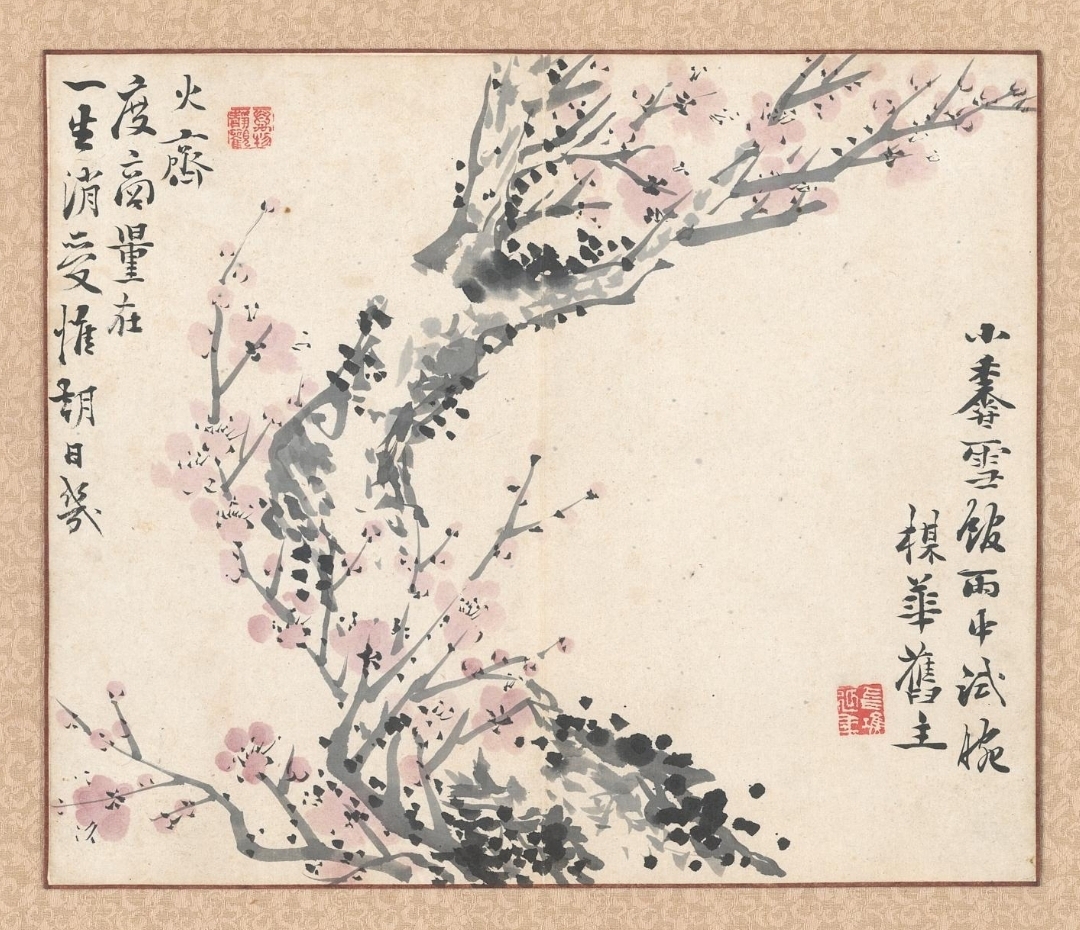 小雪館雨中試腕
楳華舊主
一生消受惟胡日幾
度商量在
火齋